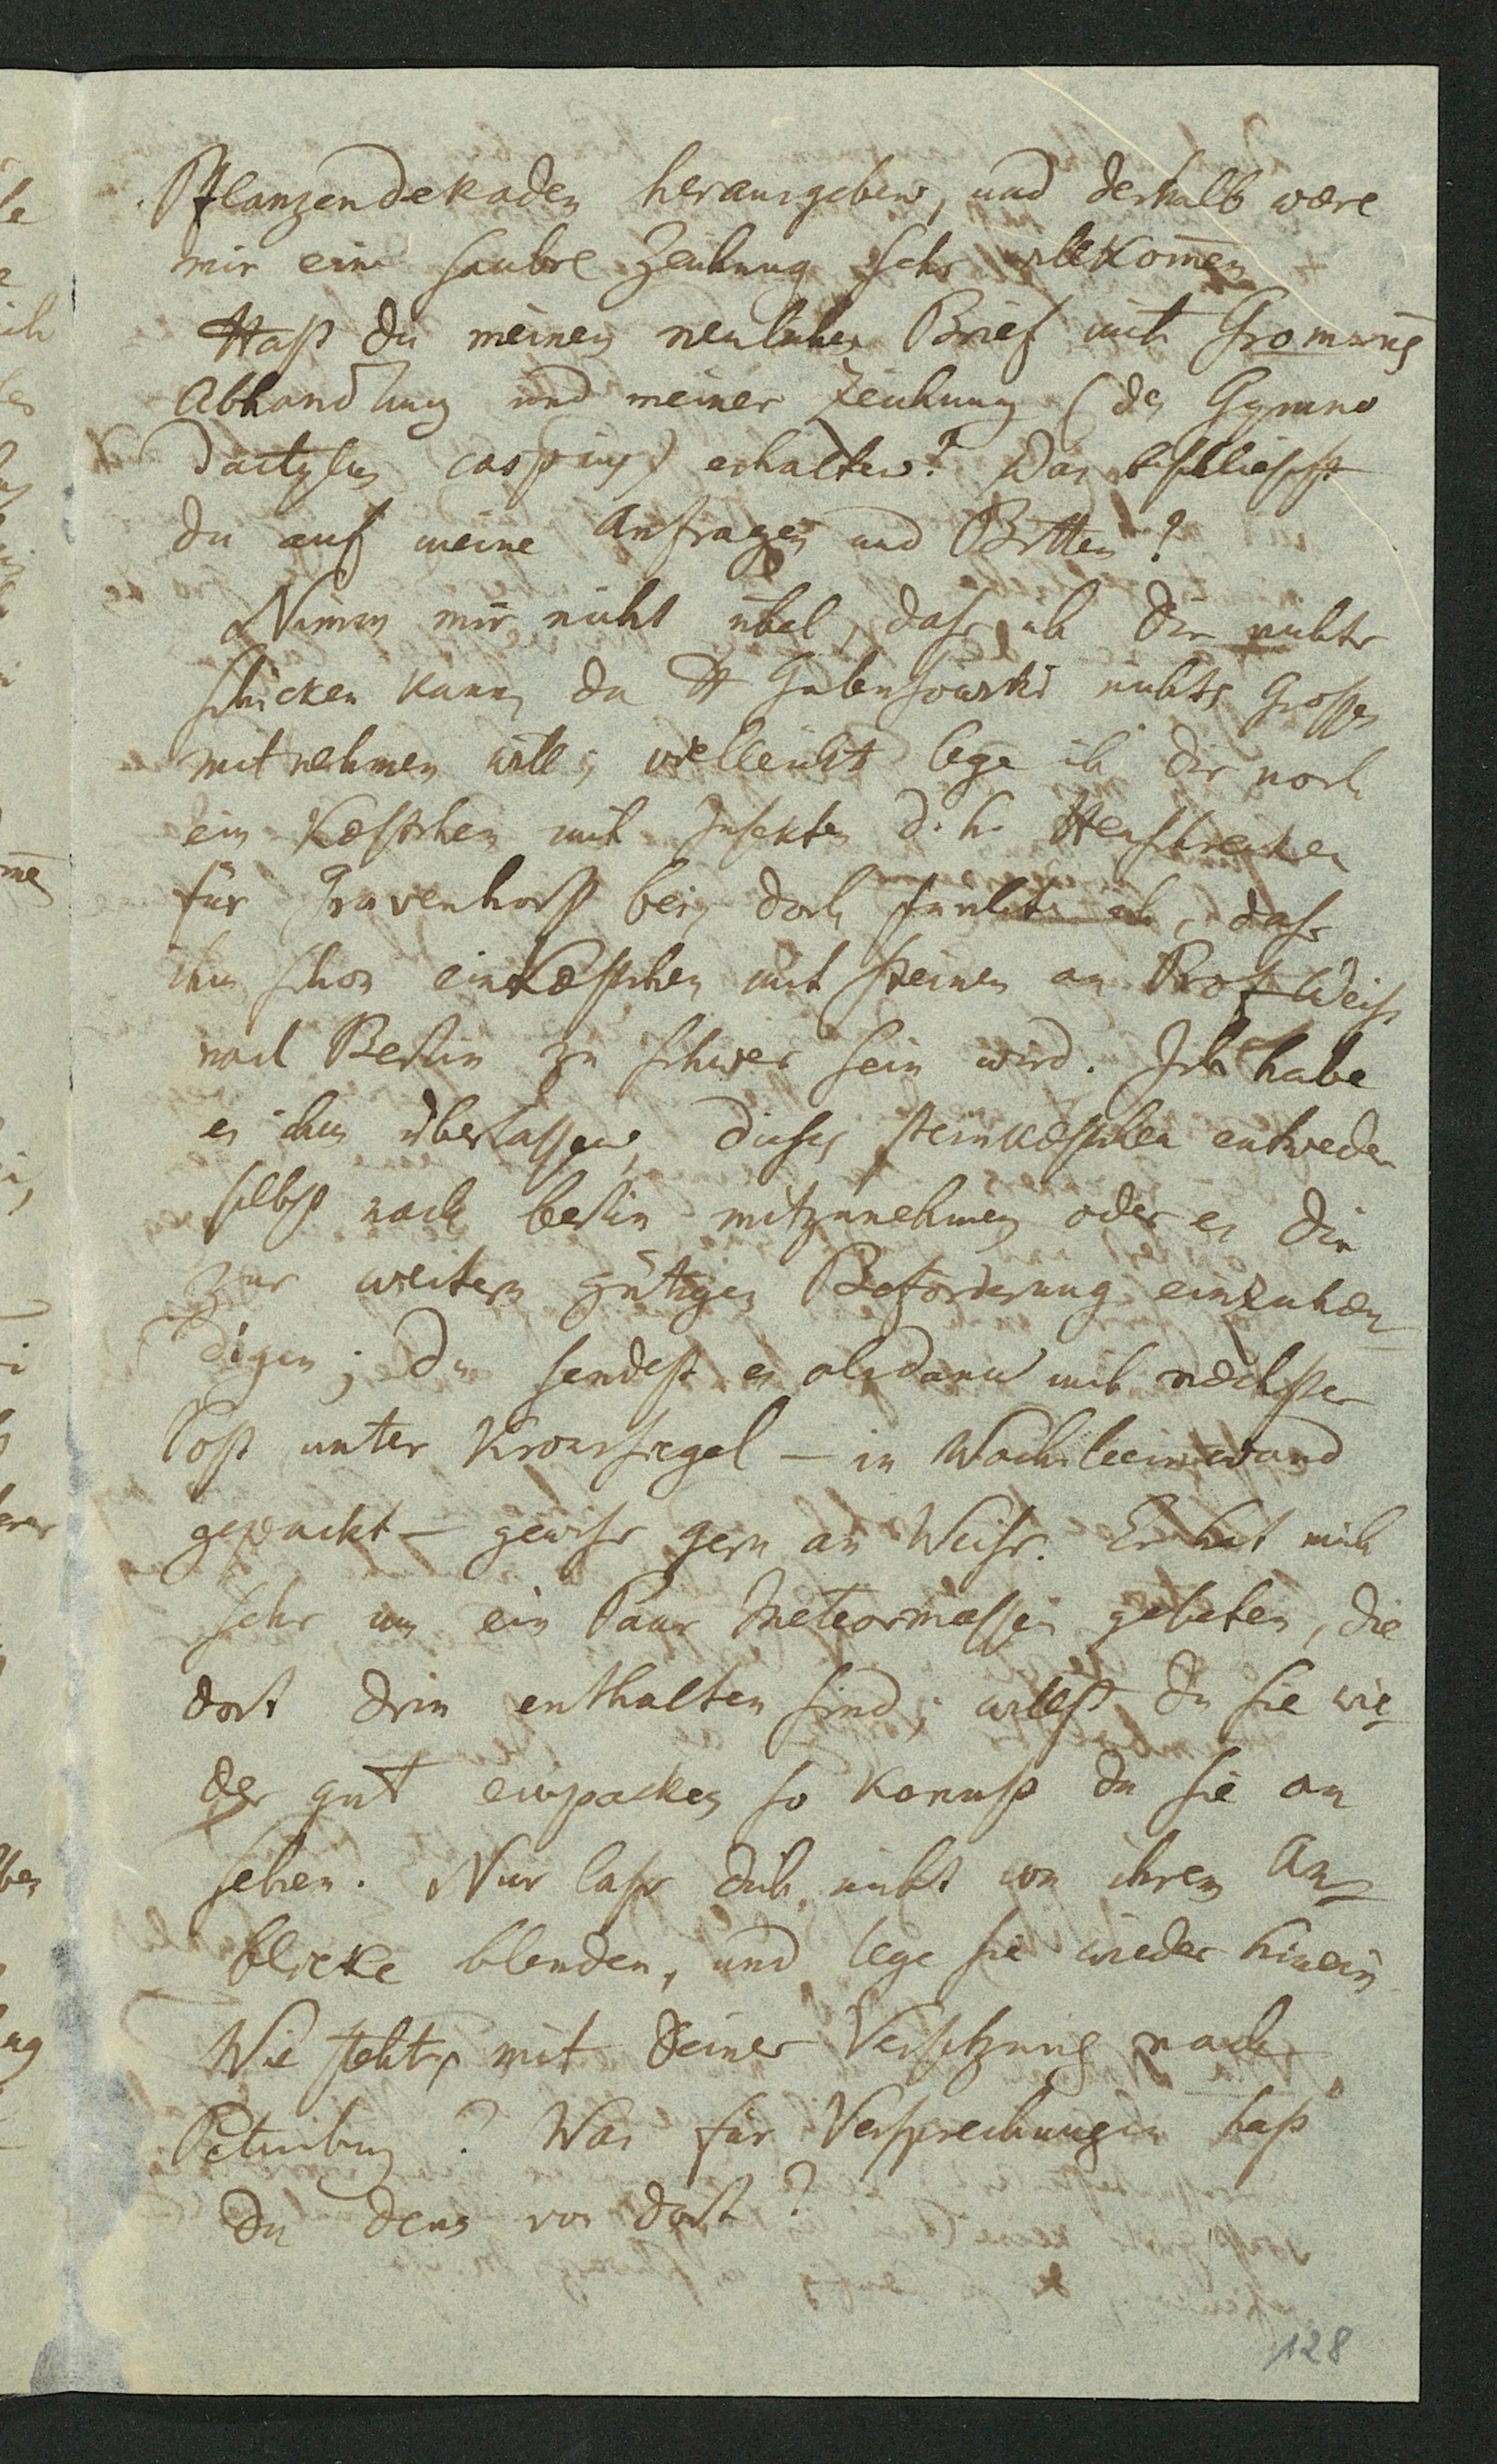 Pflanzendekaden herausgeben, und deshalb wære
mir eine saubre Zeichnung sehr willkom̅en
Hast du meinen neulichen Brief mit
Abhandlung und meiner Zeichnung (des Gymno
dactylus caspius) erhalten? Was beschliessst
du auf meine Anfragen und Bitten?
Nimm mir nicht übel, dass ich dir nichts
schicken kann, da H nichts Grosses
mitnehmen will; vielleicht lege ich dir noch
ein Kæstchen mit Insekten d. h. Heuschrecken
für Gravenhorst bei; doch fürchte ich, dass
ihm schon ein Kæstchen mit Steinen an Prof Weiss
nach Berlin zu schwer sein wird. Ich habe
es ihm überlassen, dieses Steinkæstchen entweder
selbst nach Berlin mitzunehmen oder es dir
zur weitern gütigen Beförderung einzuhæn
digen; du sendest es alsdann mit næchster
Post unter Kronssiegel – in Wachsleeinwand
gepackt – gewiss gern an Weiss. Er hat mich
sehr um ein Paar Meteormassen gebeten, die
dort drin enthalten sind; willst du sie wie
der gut einpacken so kannst du sie an
sehen. Nur lass dich nicht von ihrem An
blicke blenden, und lege sie wieder hinein.
Wie steht's mit deiner Versetzung nach
Petersburg? Was für Versprechungen hast
du denn von dort?
128